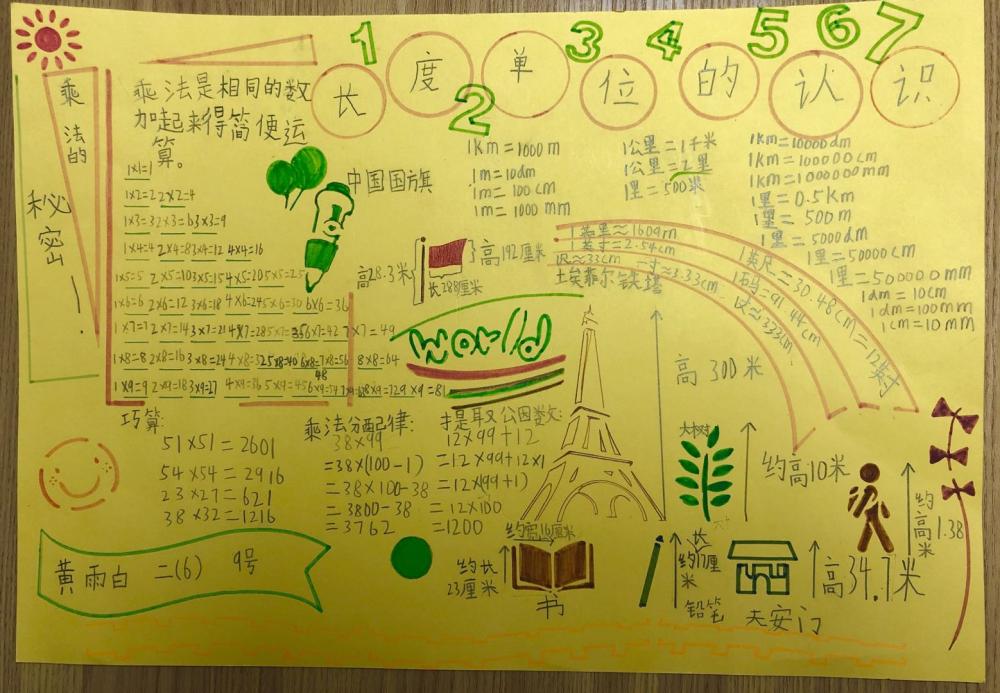 1 2 3 4 5 6 7
长度单位的认识
乘法的
秘密!
乘法是相同的数
加起来得简便运
算。
1×1=1
1×2=2 2×2=4
1×3=3 2×3=6 3×3=9
1×4=4 2×4=8 3×4=12 4×4=16
1×5=5 2×5=10 3×5=15 4×5=20 5×5=25
1×6=6 2×6=12 3×6=18 4×6=24 5×6=30 6×6=36
1×7=7 2×7=14 3×7=21 4×7=28 5×7=35 6×7=42 7×7=49
1×8=8 2×8=16 3×8=24 4×8=32 5×8=40 6×8=48 7×8=56 8×8=64
1×9=9 2×9=18 3×9=27 4×9=36 5×9=45 6×9=54 7×9=63 8×9=72 9×9=81
中国国旗
高28.3米
高192厘米
长288厘米
1km=1000m
1m=10dm
1m=100cm
1m=1000mm
1公里=1千米
1公里=2里
1里=500米
1km=10000dm
1km=100000cm
1km=1000000mm
1里=0.5km
1里=500m
1里=5000dm
1里=50000cm
1里=500000mm
1dm=10cm
1dm=100mm
1cm=10mm
1英里≈1609m
1英寸=2.54cm
1英尺=30.48cm=12英寸
1码=91.44cm
一寸≈3.33cm
埃菲尔铁塔
高300米
world
巧算:
51×51=2601
54×54=2916
23×27=621
38×32=1216
乘法分配律:
38×99
=38×(100-1)
=38×100-38
=3800-38
=3762
提取公因数:
12×99+12
=12×99+12×1
=12×(99+1)
=12×100
=1200
大树
约高10米
约高1.38米
黄雨白 二(6) 9号
约宽16厘米
约长23厘米
书
长约17厘米
铅笔
天安门
高34.7米